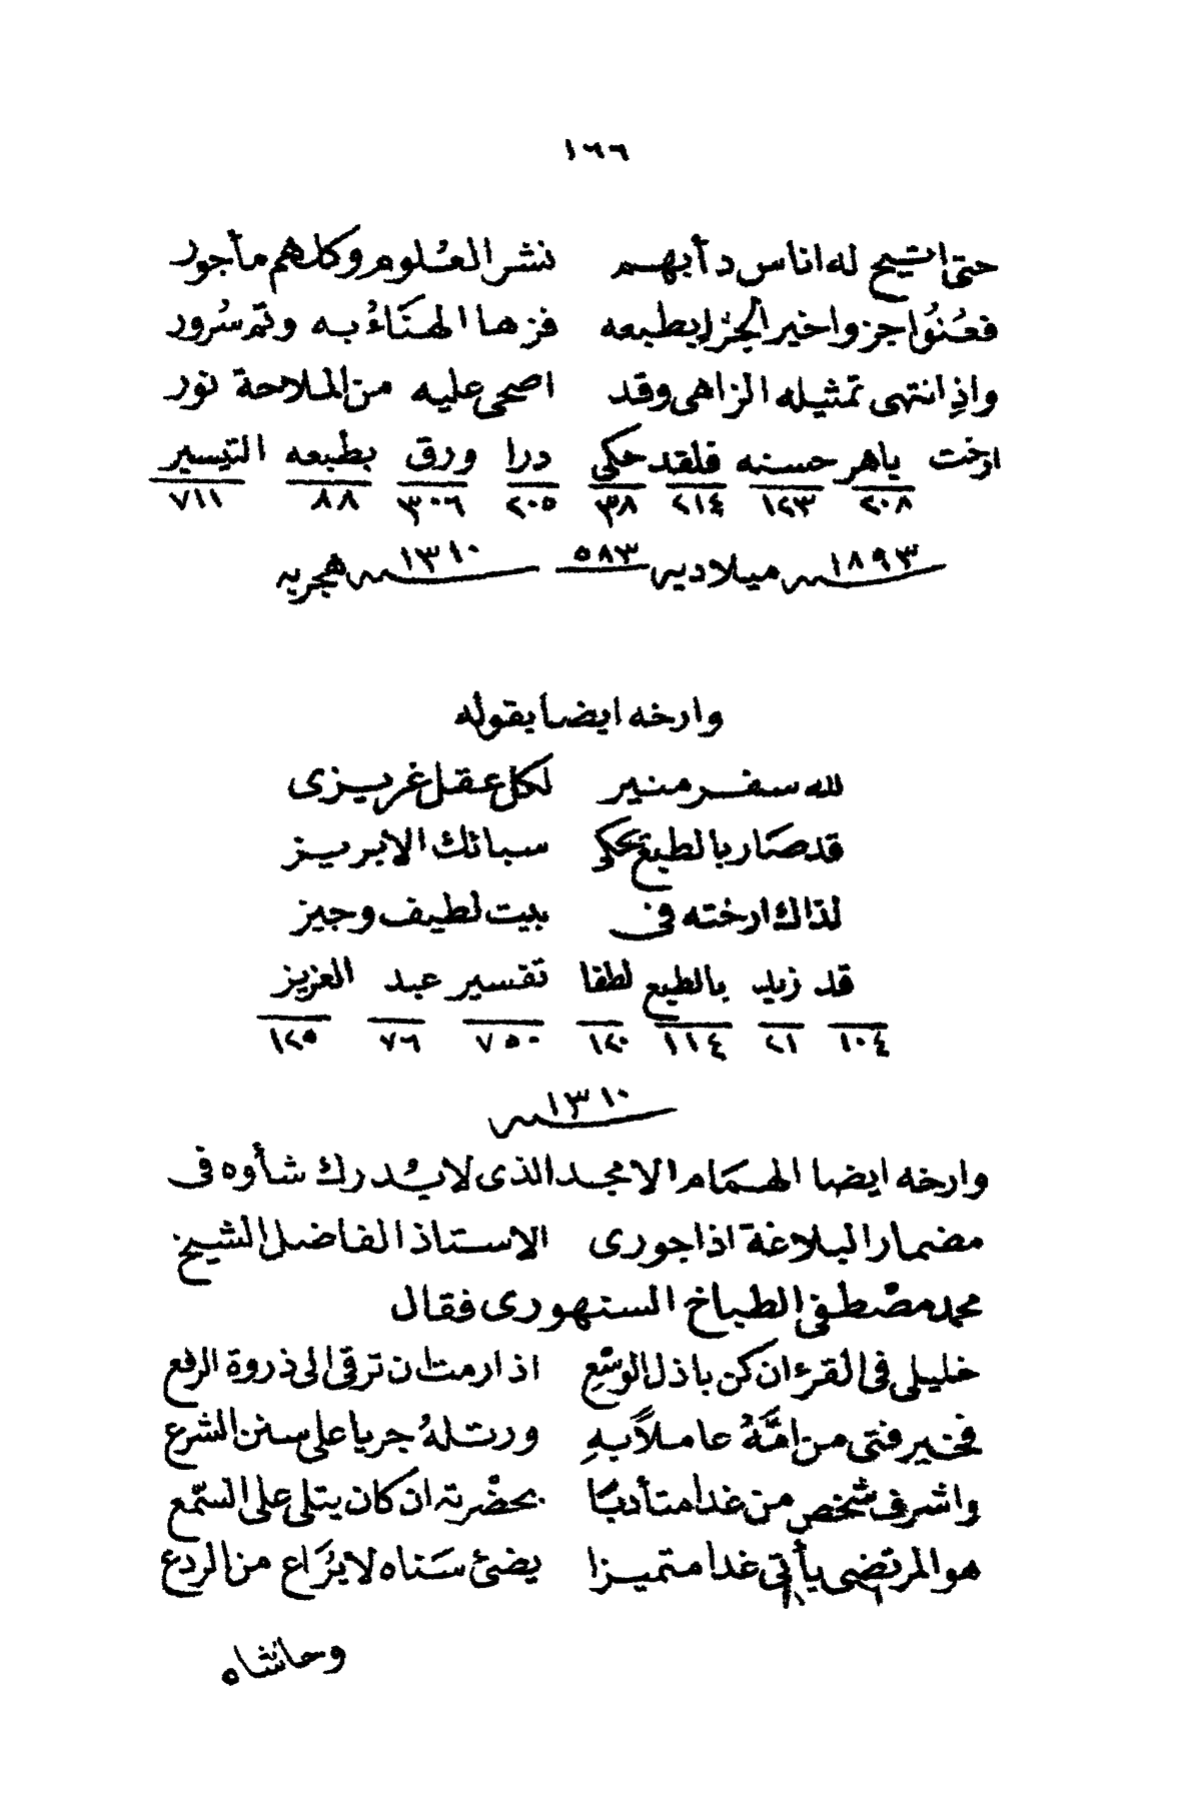 ١٦٦
حتى اتيح له اناس دأبهم نشر العُلوم وكلهم مأجور
فعُنُوا جزوا خير الجزاء بطبعه فزها الهَنَاءُ به وتم سُرور
واذِ انتهى تمثيله الزاهى وقد اضحى عليه من الملاحة نور
ارخت ياهر حسنه فلقد حكى دررا ورق بطبعه التيسير
٢٠٨ ١٢٣ ٢١٤ ٣٨ ٢٠٥ ٣٠٦ ٨٨ ٧١١
١٨٩٣ ميلاديه ٥٨٣ ١٣١٠ هجريه
وارخه ايضا بقوله
لله سفر منير لكل عقل غريزى
قد صَار بالطبع يحكى سبائك الابريز
لذاك ارخته فى ببيت لطيف وجيز
قد زيد بالطبع لطفا تفسير عبد العزيز
١٠٤ ٢١ ١١٤ ١٢٠ ٧٥٠ ٧٦ ١٢٥
١٣١٠
وارخه ايضا الهمَام الامجد الذى لا يُدرك شأوه فى
مضمار البلاغة اذا جورى الاستاذ الفاضل الشيخ
محمد مصْطفى الطباخ السنهورى فقال
خليلى فى القرءان كن باذل الوسْعِ اذا رمت ان ترقى الى ذروة الرفع
فخير فتى من امَّهُ عاملاً بهِ ورتلهُ جريا على سنن الشرع
واشرف شخص من غدا متأدبًا بحضْرته ان كان يتلى على السّمع
هو المرتضى يأتى غدا متميزا يضئ سَناه لا يُرَاع من الردع
وحاشاه